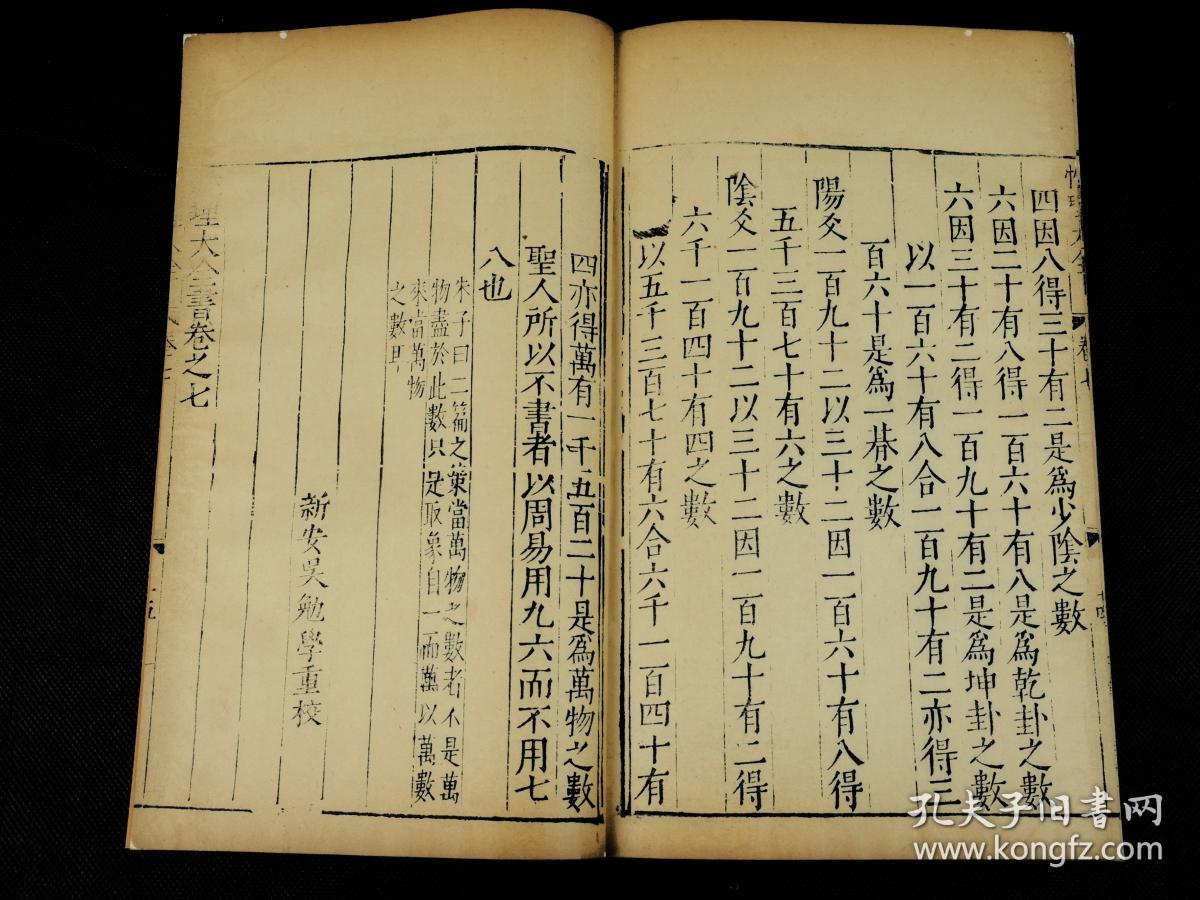 四因八得三十有二是爲少陰之數
六因二十有八得一百六十有八是爲乾卦之數
六因三十有二得一百九十有二是爲坤卦之數
以一百六十有八合一百九十有二亦得三
百六十是爲一朞之數
陽爻一百九十二以三十二因一百六十有八得
五千三百七十有六之數
陰爻一百九十二以三十二因一百九十有二得
六千一百四十有四之數
以五千三百七十有六合六千一百四十有
四亦得萬有一千五百二十是爲萬物之數
聖人所以不書者以周易用九六而不用七
八也
朱子曰二篇之策當萬物之數者不是萬
物盡於此數只是取象自一而萬以萬數
來當萬物
之數耳
新安吳勉學重校
理大全書卷之七
卷七
十四
孔夫子旧书网
www.kongfz.com